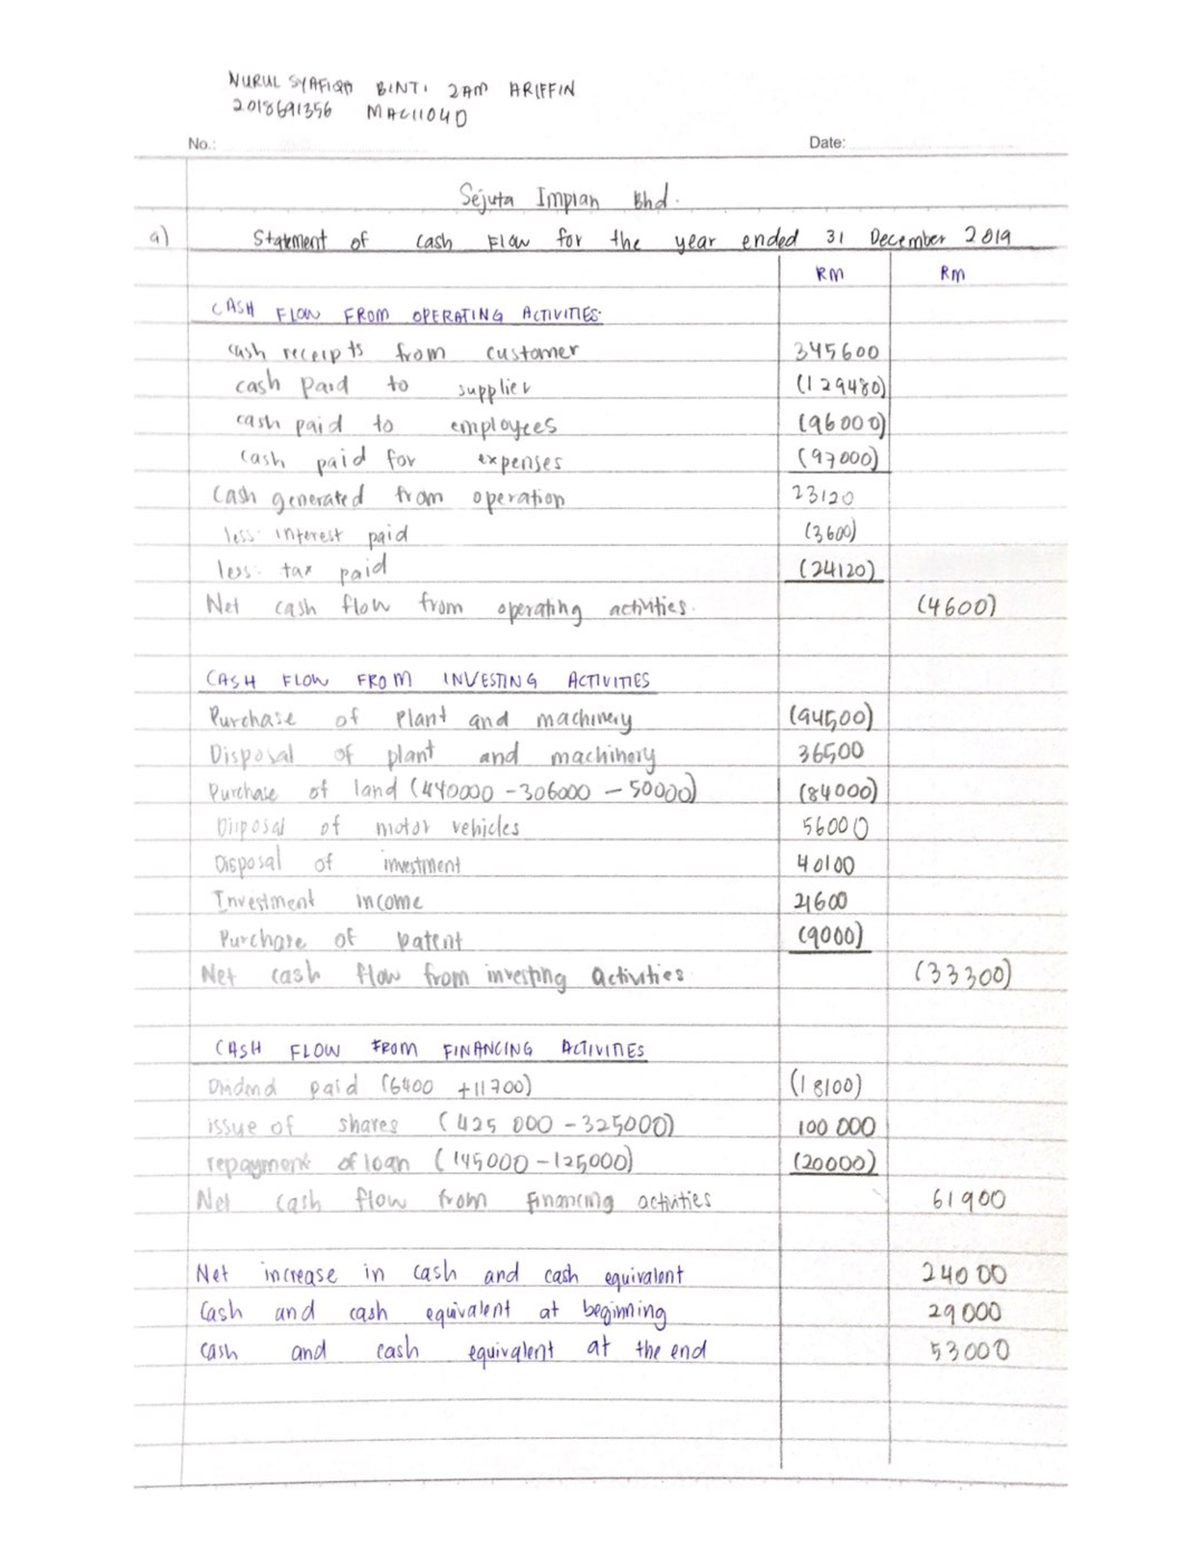 NURUL SYAFIQA BINTI ZAM ARIFFIN
2018691356 MAC1104D
No.: Date:
Sejuta Impian Bhd.
a) Statement of cash Flow for the year ended 31 December 2019
RM RM
CASH FLOW FROM OPERATING ACTIVITIES:
cash receipts from customer 345600
cash paid to supplier (129480)
cash paid to employees (96000)
cash paid for expenses (97000)
Cash generated from operation 23120
less: interest paid (3600)
less: tax paid (24120)
Net cash flow from operating activities. (4600)
CASH FLOW FROM INVESTING ACTIVITIES
Purchase of plant and machinery (94500)
Disposal of plant and machinery 36500
Purchase of land (440000 - 306000 - 50000) (84000)
Disposal of motor vehicles 56000
Disposal of investment 40100
Investment income 21600
Purchase of patent (9000)
Net cash flow from investing activities (33300)
CASH FLOW FROM FINANCING ACTIVITIES
Dividend paid (6400 + 11700) (18100)
issue of shares (425 000 - 325000) 100 000
repayment of loan (145000 - 125000) (20000)
Net cash flow from financing activities 61900
Net increase in cash and cash equivalent 24000
Cash and cash equivalent at beginning 29000
cash and cash equivalent at the end 53000